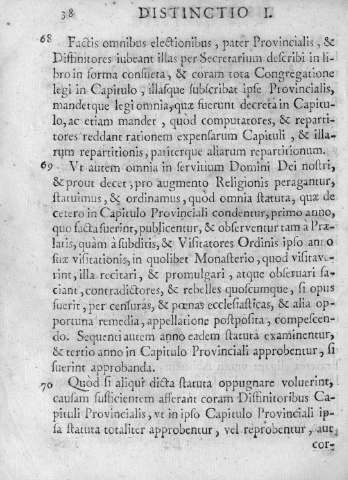 38 DISTINCTIO I.
68 Factis omnibus electionibus, pater Provincialis, &
Diffinitores iubeant illas per Secretarium describi in li-
bro in forma consueta, & coram tota Congregatione
legi in Capitulo, illasque subscribat ipse Provincialis,
mandetque legi omnia, quæ fuerunt decreta in Capitu-
lo, ac etiam mandet, quod computatores, & reparti-
tores reddant rationem expensarum Capituli, & illa-
rum repartitionis, pariterque aliarum repartitionum.
69 Vt autem omnia in servitium Domini Dei nostri,
& prout decet, pro augmento Religionis peragantur,
statuimus, & ordinamus, quod omnia statuta, quæ de
cetero in Capitulo Provinciali condentur, primo anno,
quo facta fuerint, publicentur, & observentur tam a Præ-
latis, quàm à subditis, & Visitatores Ordinis ipso anno
suæ visitationis, in quolibet Monasterio, quod visitave-
rint, illa recitari, & promulgari, atque observari fa-
ciant, contradictores, & rebelles quoscumque, si opus
fuerit, per censuras, & pœnas ecclesiasticas, & alia op-
portuna remedia, appellatione postposita, compescen-
do. Sequenti autem anno eadem statuta examinentur,
& tertio anno in Capitulo Provinciali approbentur, si
fuerint approbanda.
70 Quòd si aliqui dicta statuta oppugnare voluerint,
causam sufficientem afferant coram Diffinitoribus Ca-
pituli Provincialis, vt in ipso Capitulo Provinciali ip-
sa statuta totaliter approbentur, vel reprobentur, aut
cor-